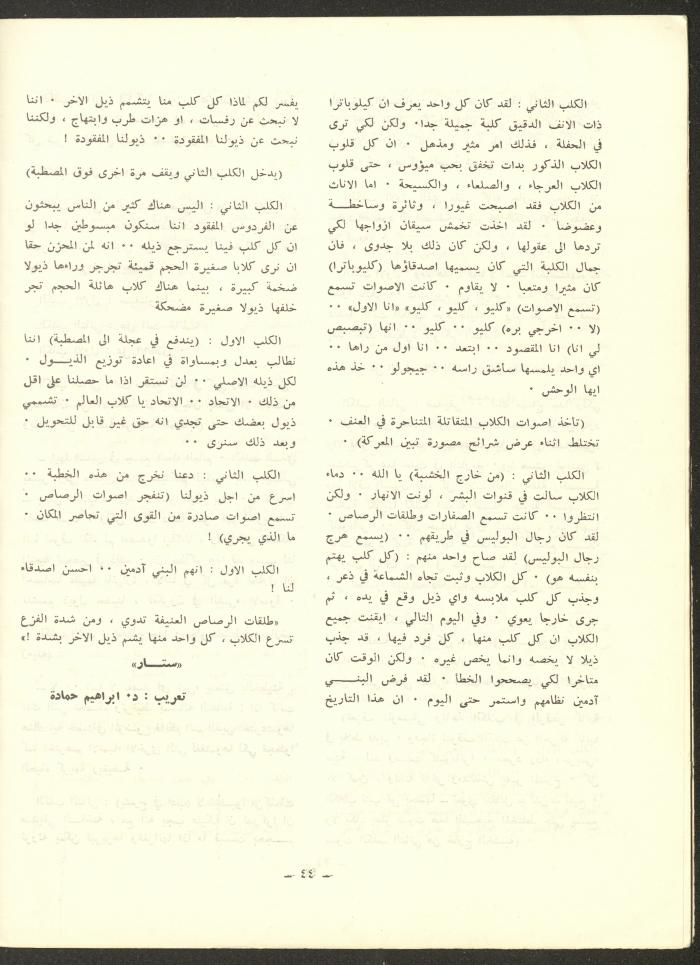 الكلب الثاني : لقد كان كل واحد يعرف ان كيلوباترا
ذات الانف الدقيق كلبة جميلة جدا٠ ولكن لكي ترى
في الحفلة ، فذلك امر مثير ومذهل ٠ ان كل قلوب
الكلاب الذكور بدات تخفق بحب ميؤوس ، حتى قلوب
الكلاب العرجاء ، والصلعاء ، والكسيحة ٠ اما الاناث
من الكلاب فقد اصبحت غيورا ، وثائرة وساخطة
وعضوضا ٠ لقد اخذت تخمش سيقان ازواجها لكي
تردها الى عقولها ، ولكن كان ذلك بلا جدوى ، فان
جمال الكلبة التي كان يسميها اصدقاؤها (كليوباترا)
كان مثيرا ومتعبا ٠ لا يقاوم ٠ كانت الاصوات تسمع
(تسمع الاصوات) «كليو ، كليو ، كليو» «انا الاول» ٠٠
(لا ٠٠ اخرجي بره) كليو ٠٠ كليو ٠٠ انها (تبصبص
لي انا) انا المقصود ٠٠ ابتعد ٠٠ انا اول من راها ٠٠
اي واحد يلمسها ساشق راسه ٠٠ جيجولو ٠٠ خذ هذه
ايها الوحش ٠
(تأخذ اصوات الكلاب المتقاتلة المتناحرة في العنف ٠
تختلط اثناء عرض شرائح مصورة تبين المعركة) ٠
الكلب الثاني : (من خارج الخشبة) يا الله ٠٠ دماء
الكلاب سالت في قنوات البشر ، لونت الانهار ٠ ولكن
انتظروا ٠٠ كانت تسمع الصفارات وطلقات الرصاص ٠
لقد كان رجال البوليس في طريقهم ٠٠ (يسمع هرج
رجال البوليس) لقد صاح واحد منهم : (كل كلب يهتم
بنفسه هو) ٠ كل الكلاب وثبت تجاه الشماعة في ذعر ،
وجذب كل كلب ملابسه واي ذيل وقع في يده ، ثم
جرى خارجا يعوي ٠ وفي اليوم التالي ، ايقنت جميع
الكلاب ان كل كلب منها ، كل فرد فيها ، قد جذب
ذيلا لا يخصه وانما يخص غيره ٠ ولكن الوقت كان
متاخرا لكي يصححوا الخطا ٠ لقد فرض البنـــي
آدمين نظامهم واستمر حتى اليوم ٠ ان هذا التاريخ
يفسر لكم لماذا كل كلب منا يتشمم ذيل الاخر ٠ اننا
لا نبحث عن رفسات ، او هزات طرب وابتهاج ، ولكننا
نبحث عن ذيولنا المفقودة ٠٠ ذيولنا المفقودة !
(يدخل الكلب الثاني ويقف مرة اخرى فوق المصطبة)
الكلب الثاني : اليس هناك كثير من الناس يبحثون
عن الفردوس المفقود اننا سنكون مبسوطين جدا لو
ان كل كلب فينا يسترجع ذيله ٠٠ انه لمن المحزن حقا
ان نرى كلابا صغيرة الحجم قميئة تجرجر وراءها ذيولا
ضخمة كبيرة ، بينما هناك كلاب هائلة الحجم تجر
خلفها ذيولا صغيرة مضحكة
الكلب الاول : (يندفع في عجلة الى المصطبة) اننا
نطالب بعدل وبمساواة في اعادة توزيع الذيـــول ٠
لكل ذيله الاصلي ٠٠ لن نستقر اذا ما حصلنا على اقل
من ذلك ٠ الاتحاد ٠٠ الاتحاد يا كلاب العالم ٠ تشممي
ذيول بعضك حتى تجدي انه حق غير قابل للتحويل ٠
وبعد ذلك سنرى ٠٠
الكلب الثاني : دعنا نخرج من هذه الخطبة ٠٠
اسرع من اجل ذيولنا (تنفجر اصوات الرصاص ٠
تسمع اصوات صادرة من القوى التي تحاصر المكان ٠
ما الذي يجري) !
الكلب الاول : انهم البني آدمين ٠٠ احسن اصدقاء
لنا !
«طلقات الرصاص العنيفة تدوي ، ومن شدة الفزع
تسرع الكلاب ، كل واحد منها يشم ذيل الاخر بشدة !»
«ستـــار»
تعريب : د٠ ابراهيم حمادة
ـ ٤٤ ـ